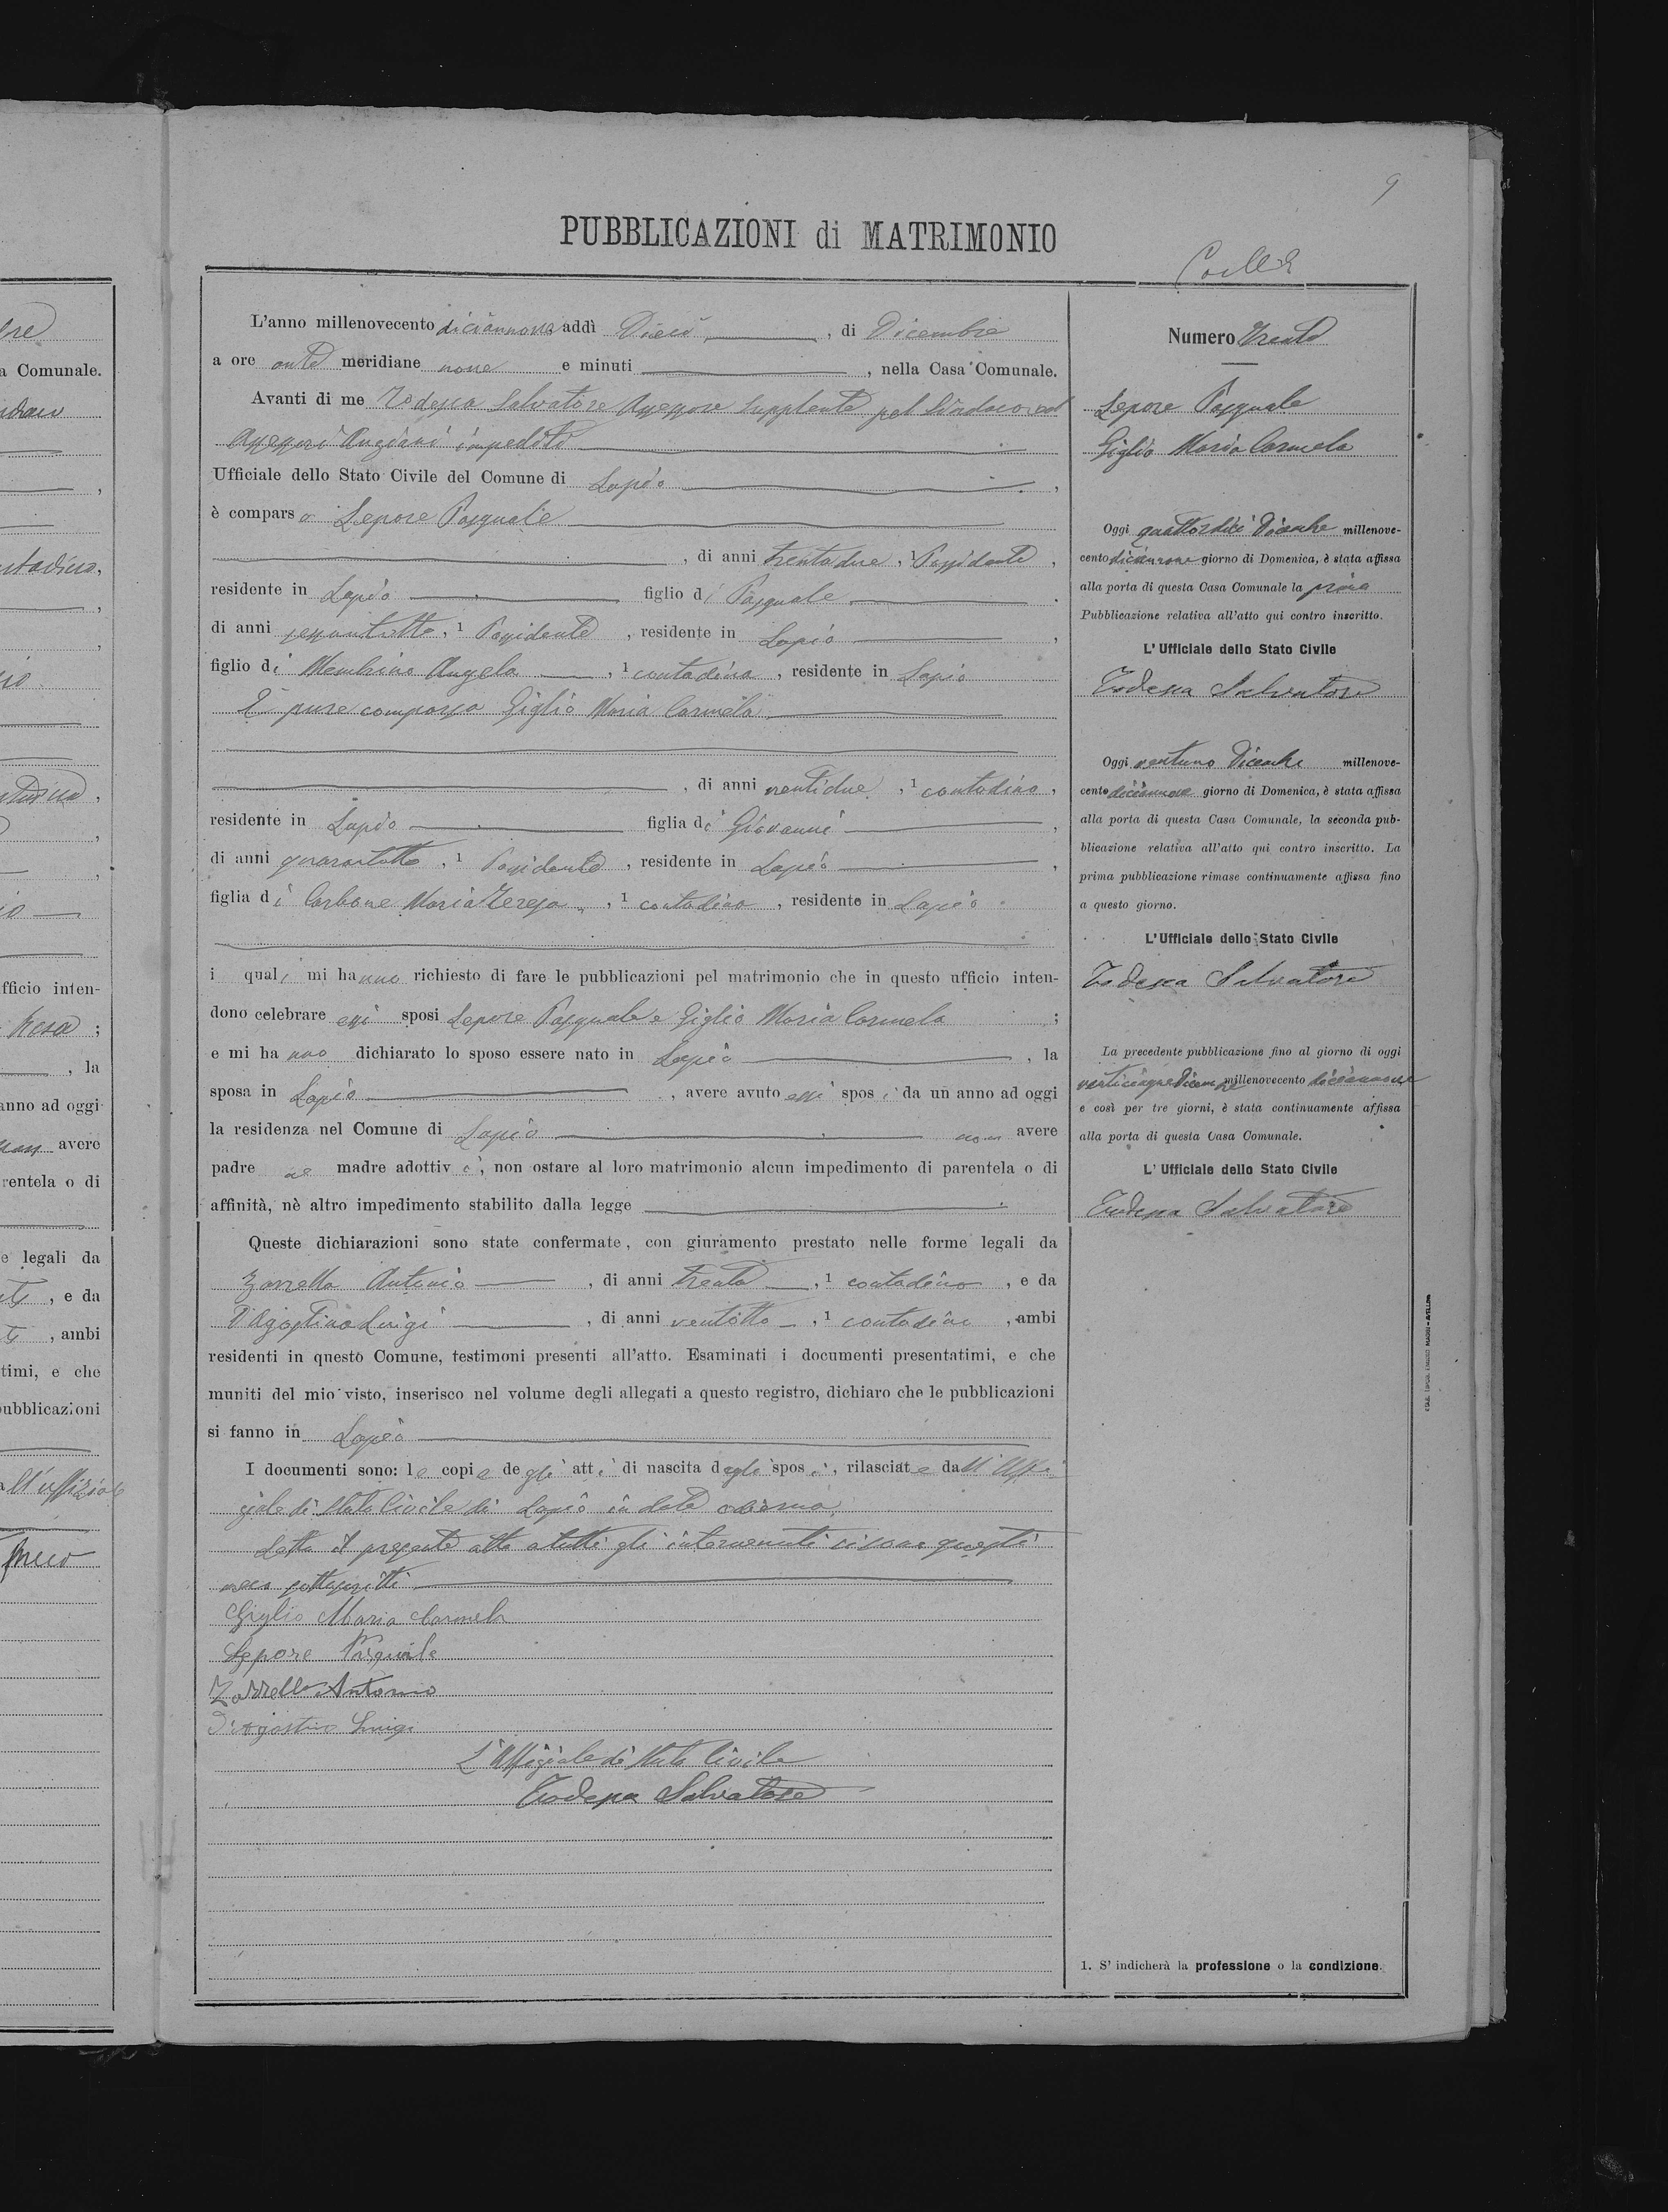 9
PUBBLICAZIONI di MATRIMONIO
L'anno millenovecento diciannove addì Dieci, di Dicembre
a ore ante meridiane nove e minuti, nella Casa Comunale.
Avanti di me Todesca Salvatore Assessore Supplente pel Sindaco ed
Assessori Anziani impediti
Ufficiale dello Stato Civile del Comune di Lapio,
è comparso Lepore Pasquale
, di anni trentadue, 1 Possidente,
residente in Lapio figlio di Pasquale
di anni sessantotto, 1 Possidente, residente in Lapio,
figlio di Membrino Angela, 1 contadina, residente in Lapio
È pure comparsa Giglio Maria Carmela
, di anni ventidue, 1 contadina,
residente in Lapio figlia di Giovanni,
di anni quarantotto, 1 Possidente, residente in Lapio,
figlia di Carbone Maria Teresa, 1 contadina, residente in Lapio
i quali mi hanno richiesto di fare le pubblicazioni pel matrimonio che in questo ufficio inten-
dono celebrare essi sposi Lepore Pasquale e Giglio Maria Carmela;
e mi hanno dichiarato lo sposo essere nato in Lapio, la
sposa in Lapio, avere avuto essi sposi da un anno ad oggi
la residenza nel Comune di Lapio non avere
padre ne madre adottivi, non ostare al loro matrimonio alcun impedimento di parentela o di
affinità, nè altro impedimento stabilito dalla legge
Queste dichiarazioni sono state confermate, con giuramento prestato nelle forme legali da
Zarrella Antonio, di anni trenta, 1 contadino, e da
D'Agostino Luigi, di anni ventotto, 1 contadino, ambi
residenti in questo Comune, testimoni presenti all'atto. Esaminati i documenti presentatimi, e che
muniti del mio visto, inserisco nel volume degli allegati a questo registro, dichiaro che le pubblicazioni
si fanno in Lapio
I documenti sono: le copie degli atti di nascita degli sposi, rilasciate dall'Uffi
ziale di Stato Civile di Lapio in data odierna.
Letto il presente atto a tutti gli intervenuti si sono questi
meco sottoscritti
Giglio Maria Carmela
Lepore Pasquale
Zarrella Antonio
D'Agostino Luigi
L'Uffiziale di Stato Civile
Todesca Salvatore
Numero Trenta
Lepore Pasquale
Giglio Maria Carmela
Oggi quattordici Dicembre millenove-
cento diciannove giorno di Domenica, è stata affissa
alla porta di questa Casa Comunale la prima
Pubblicazione relativa all'atto qui contro inscritto.
L'Ufficiale dello Stato Civile
Todesca Salvatore
Oggi ventuno Dicembre millenove-
cento diciannove giorno di Domenica, è stata affissa
alla porta di questa Casa Comunale, la seconda pub-
blicazione relativa all'atto qui contro inscritto. La
prima pubblicazione rimase continuamente affissa fino
a questo giorno.
L'Ufficiale dello Stato Civile
Todesca Salvatore
La precedente pubblicazione fino al giorno di oggi
venticinque Dicembre millenovecento diciannove
e così per tre giorni, è stata continuamente affissa
alla porta di questa Casa Comunale.
L'Ufficiale dello Stato Civile
Todesca Salvatore
1. S'indicherà la professione o la condizione.
a Comunale.
fficio inten-
, la
anno ad oggi
avere
rentela o di
e legali da
, e da
, ambi
timi, e che
ubblicazioni